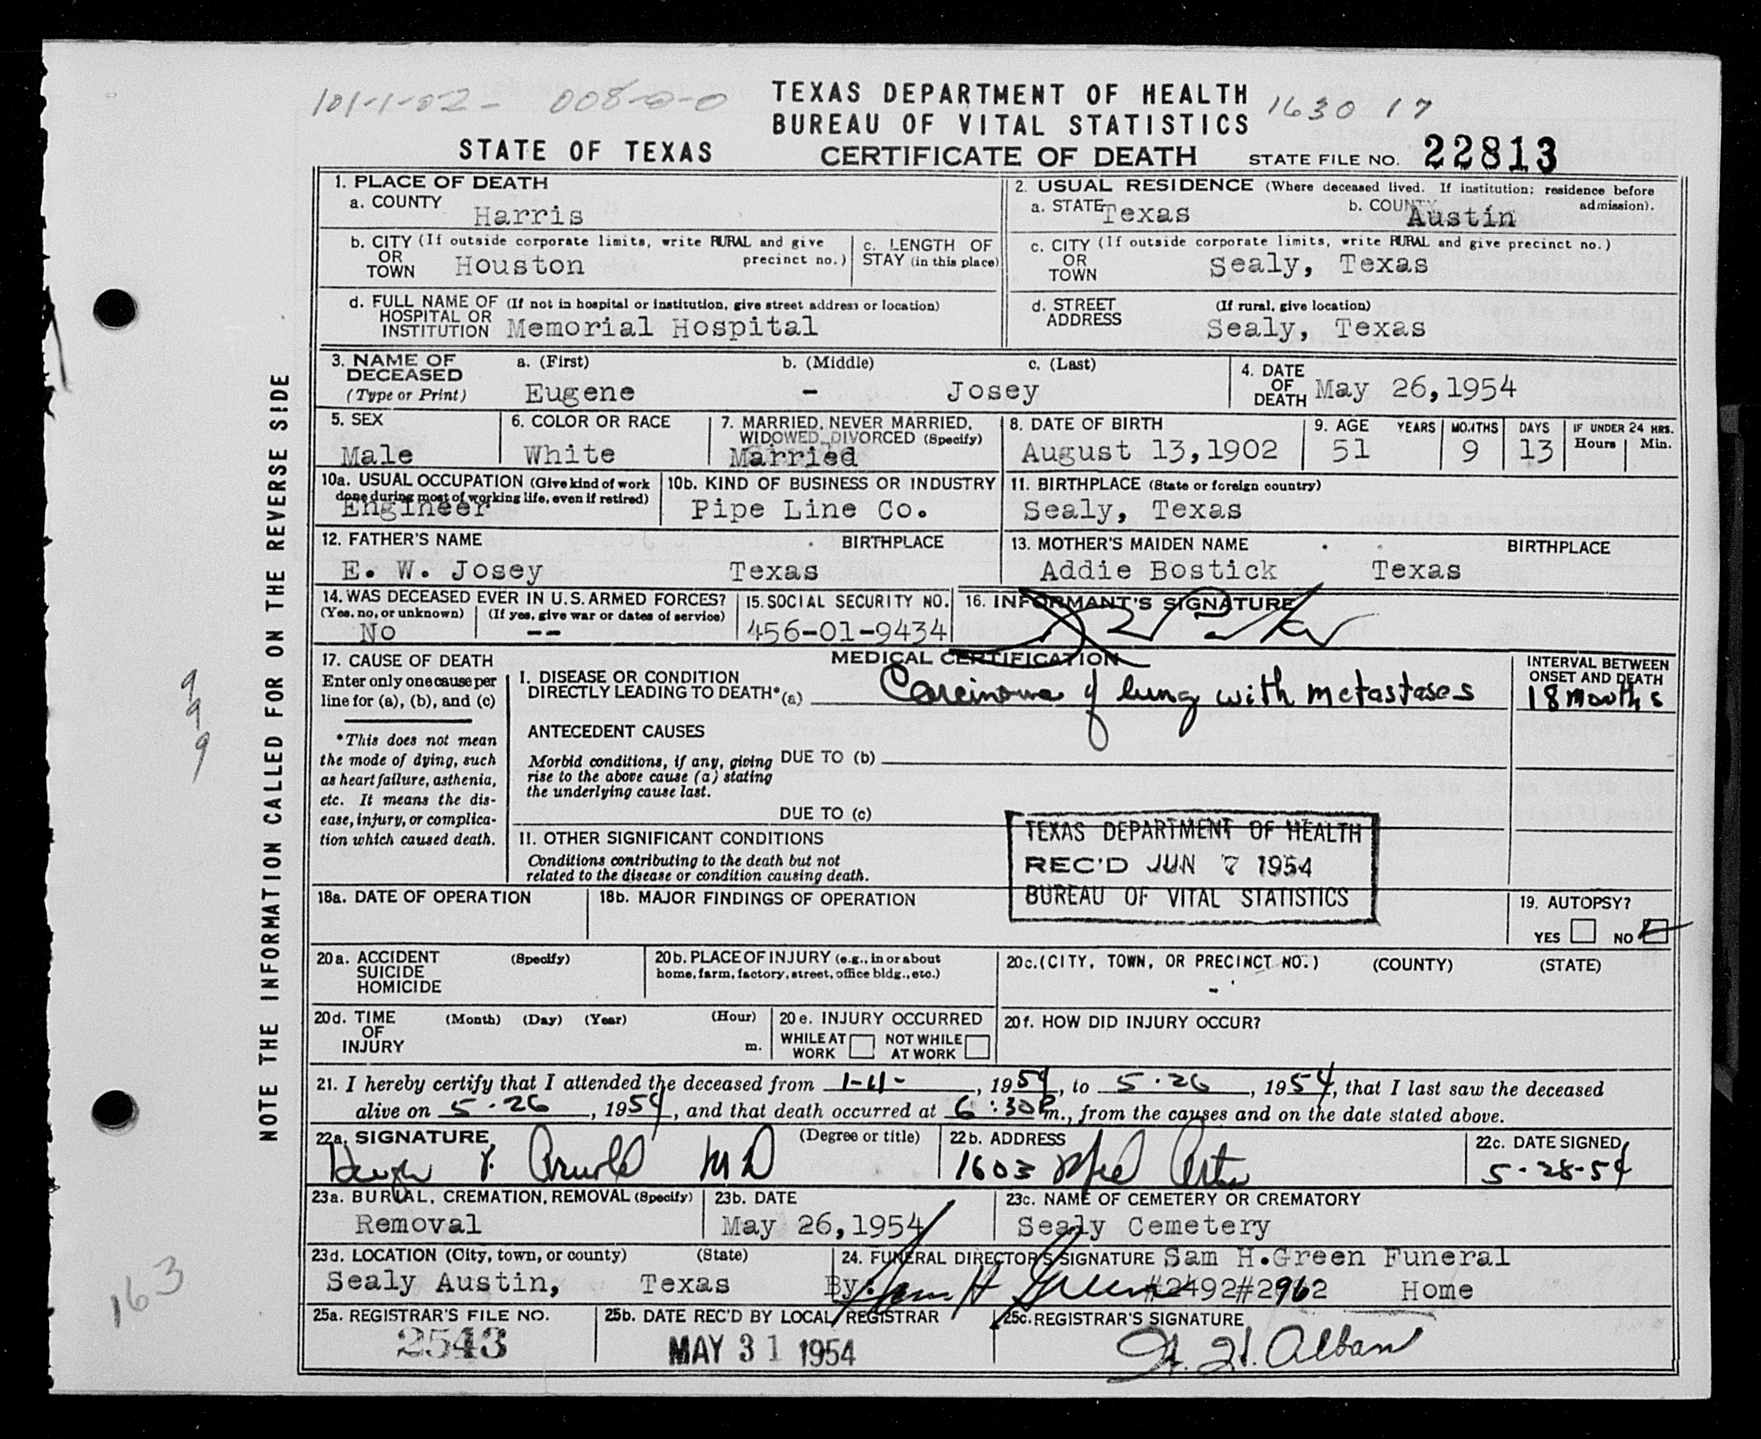 101-1-02- 008-0-0
TEXAS DEPARTMENT OF HEALTH
1630 17
BUREAU OF VITAL STATISTICS
STATE OF TEXAS
CERTIFICATE OF DEATH
STATE FILE NO. 22813
NOTE THE INFORMATION CALLED FOR ON THE REVERSE SIDE
999
163
1. PLACE OF DEATH
a. COUNTY Harris
2. USUAL RESIDENCE (Where deceased lived. If institution: residence before admission).
a. STATE Texas b. COUNTY Austin
b. CITY (If outside corporate limits, write RURAL and give precinct no.)
OR
TOWN Houston
c. LENGTH OF
STAY (in this place)
c. CITY (If outside corporate limits, write RURAL and give precinct no.)
OR
TOWN Sealy, Texas
d. FULL NAME OF (If not in hospital or institution, give street address or location)
HOSPITAL OR
INSTITUTION Memorial Hospital
d. STREET (If rural, give location)
ADDRESS Sealy, Texas
3. NAME OF a. (First) b. (Middle) c. (Last)
DECEASED
(Type or Print) Eugene - Josey
4. DATE
OF
DEATH May 26,1954
5. SEX
Male
6. COLOR OR RACE
White
7. MARRIED, NEVER MARRIED,
WIDOWED, DIVORCED (Specify)
Married
8. DATE OF BIRTH
August 13,1902
9. AGE YEARS MONTHS DAYS IF UNDER 24 HRS.
Hours Min.
51 9 13
10a. USUAL OCCUPATION (Give kind of work
done during most of working life, even if retired)
Engineer
10b. KIND OF BUSINESS OR INDUSTRY
Pipe Line Co.
11. BIRTHPLACE (State or foreign country)
Sealy, Texas
12. FATHER'S NAME BIRTHPLACE
E. W. Josey Texas
13. MOTHER'S MAIDEN NAME BIRTHPLACE
Addie Bostick Texas
14. WAS DECEASED EVER IN U.S. ARMED FORCES?
(Yes, no, or unknown) (If yes, give war or dates of service)
No --
15. SOCIAL SECURITY NO.
456-01-9434
16. INFORMANT'S SIGNATURE
MEDICAL CERTIFICATION
17. CAUSE OF DEATH
Enter only one cause per
line for (a), (b), and (c)
*This does not mean
the mode of dying, such
as heart failure, asthenia,
etc. It means the dis-
ease, injury, or complica-
tion which caused death.
I. DISEASE OR CONDITION
DIRECTLY LEADING TO DEATH*(a) Carcinoma of lung with metastases
INTERVAL BETWEEN
ONSET AND DEATH
18 months
ANTECEDENT CAUSES
Morbid conditions, if any, giving
rise to the above cause (a) stating
the underlying cause last.
DUE TO (b)
DUE TO (c)
II. OTHER SIGNIFICANT CONDITIONS
Conditions contributing to the death but not
related to the disease or condition causing death.
TEXAS DEPARTMENT OF HEALTH
REC'D JUN 7 1954
BUREAU OF VITAL STATISTICS
18a. DATE OF OPERATION
18b. MAJOR FINDINGS OF OPERATION
19. AUTOPSY?
YES NO
20a. ACCIDENT (Specify)
SUICIDE
HOMICIDE
20b. PLACE OF INJURY (e.g., in or about
home, farm, factory, street, office bldg., etc.)
20c. (CITY, TOWN, OR PRECINCT NO.) (COUNTY) (STATE)
20d. TIME (Month) (Day) (Year) (Hour)
OF
INJURY m.
20e. INJURY OCCURRED
WHILE AT WORK NOT WHILE AT WORK
20f. HOW DID INJURY OCCUR?
21. I hereby certify that I attended the deceased from 1-11-, 1954, to 5-26, 1954, that I last saw the deceased
alive on 5-26, 1954, and that death occurred at 6:30P m., from the causes and on the date stated above.
22a. SIGNATURE (Degree or title)
Arnold MD
22b. ADDRESS
1603 Med Arts
22c. DATE SIGNED
5-28-54
23a. BURIAL, CREMATION, REMOVAL (Specify)
Removal
23b. DATE
May 26,1954
23c. NAME OF CEMETERY OR CREMATORY
Sealy Cemetery
23d. LOCATION (City, town, or county) (State)
Sealy Austin, Texas
24. FUNERAL DIRECTOR'S SIGNATURE Sam H.Green Funeral
By: Sam H Green #2492#2962 Home
25a. REGISTRAR'S FILE NO.
2543
25b. DATE REC'D BY LOCAL REGISTRAR
MAY 31 1954
25c. REGISTRAR'S SIGNATURE
Alban